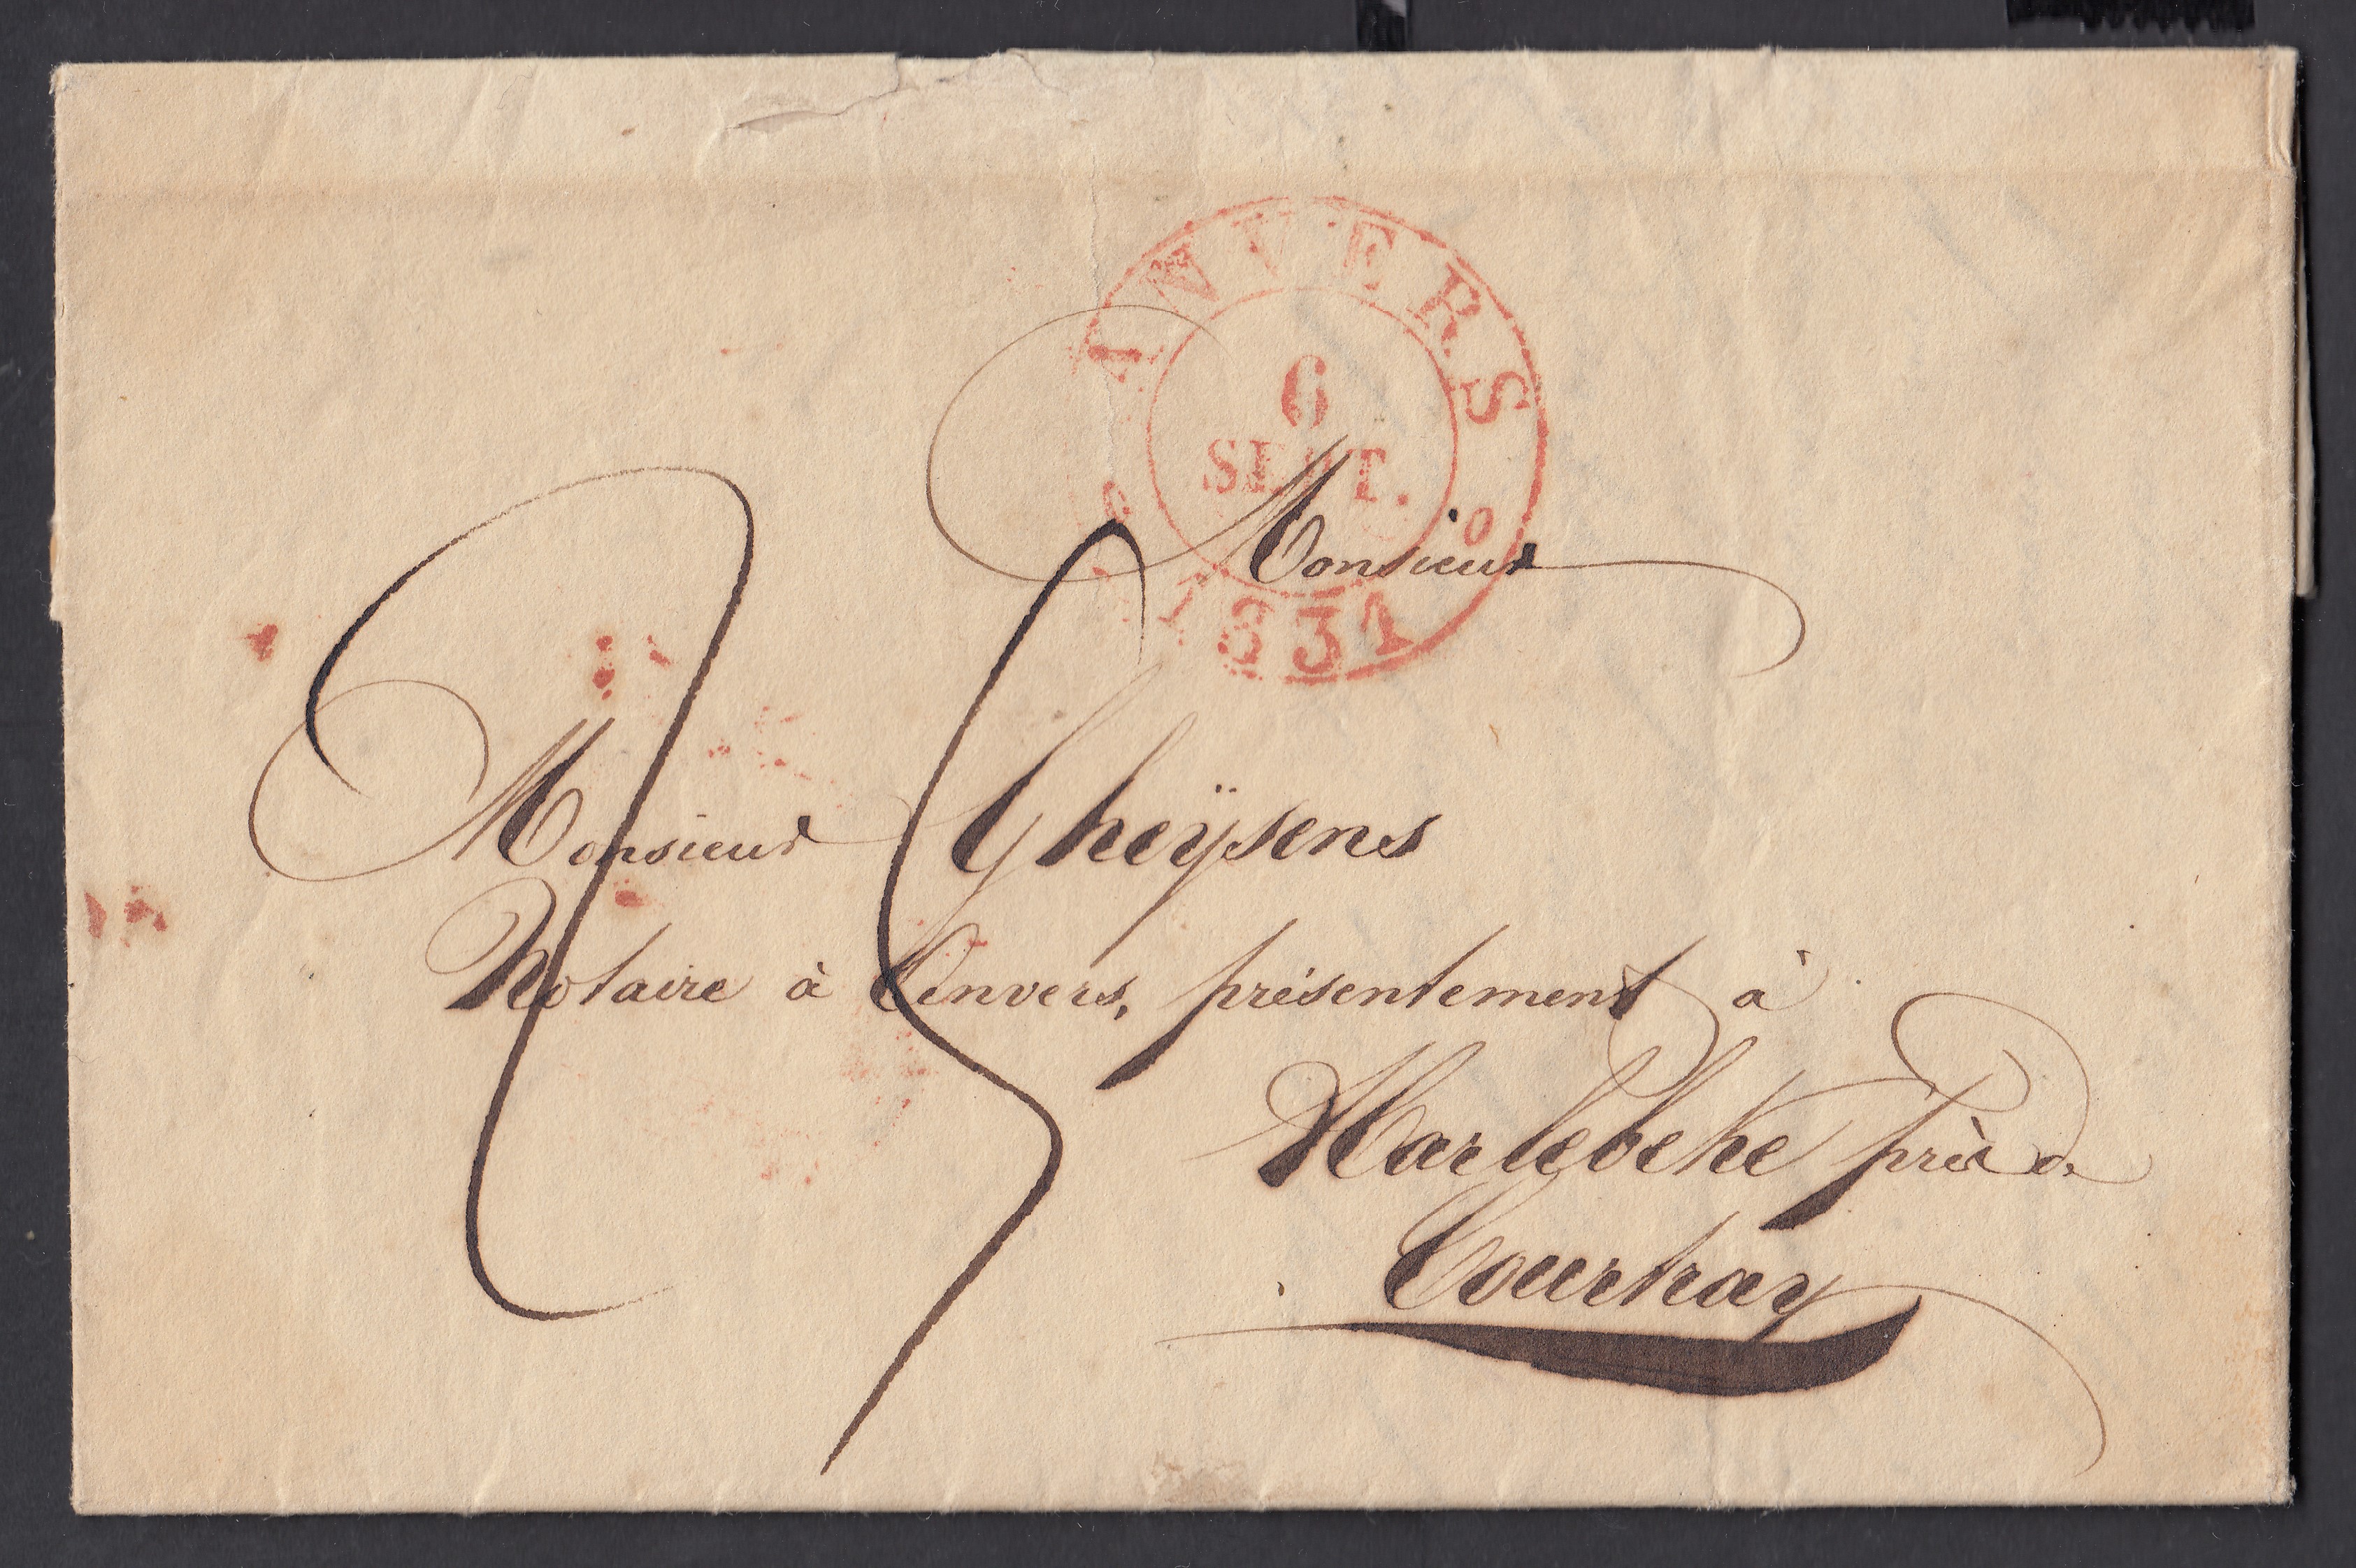 ANVERS
6
SEPT.
1831
Monsieur
Monsieur Gheÿsens
Notaire à Anvers, présentement à
Harlebeke près de
Courtray